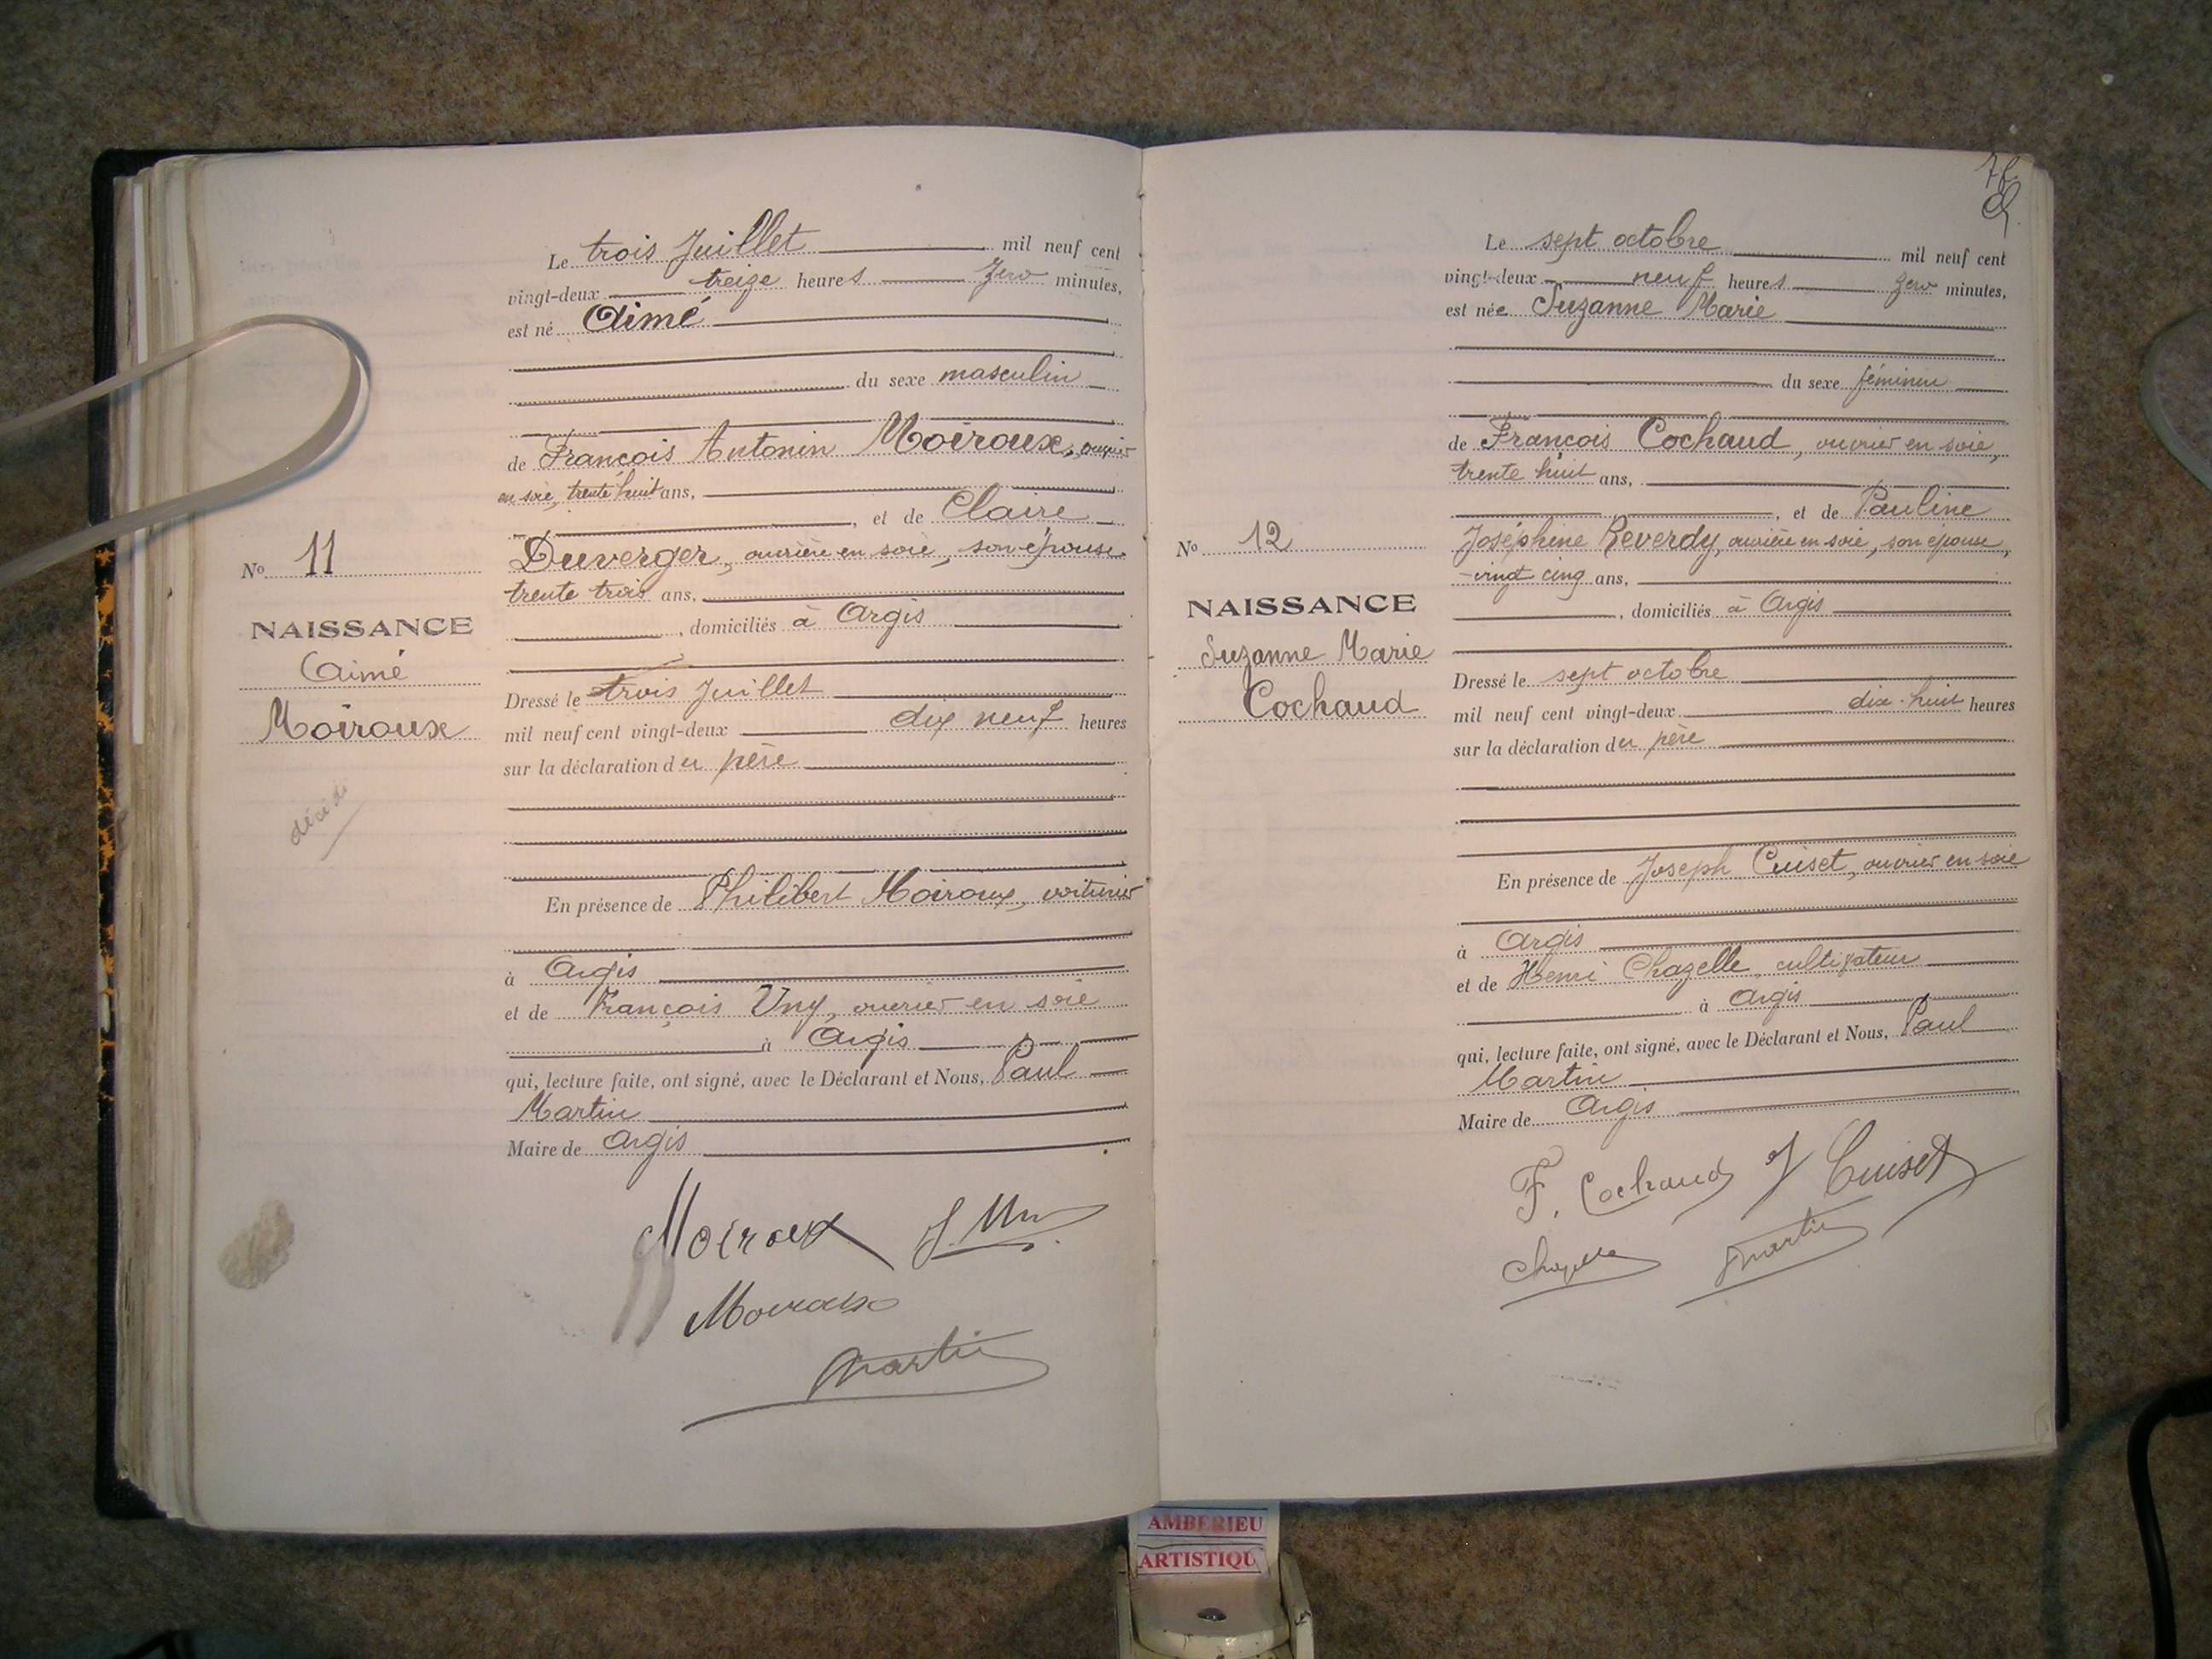 No 11
NAISSANCE
Aimé
Moiroux
décédé
Le trois Juillet mil neuf cent
vingt-deux treize heures zero minutes,
est né Aimé
du sexe masculin
de François Antonin Moiroux, ouvrier
en soie, trente huit ans,
, et de Claire
Duverger, ouvrière en soie, son épouse,
trente trois ans,
, domiciliés à Argis
Dressé le trois Juillet
mil neuf cent vingt-deux dix neuf heures
sur la déclaration du père
En présence de Philibert Moiroux, voiturier
à Argis
et de François Uny, ouvrier en soie
à Argis
qui, lecture faite, ont signé, avec le Déclarant et Nous, Paul
Martin
Maire de Argis
Moiroux
Moiroux
Martin
No 12
NAISSANCE
Suzanne Marie
Cochaud
Le sept octobre mil neuf cent
vingt-deux neuf heures zero minutes,
est née Suzanne Marie
du sexe féminin
de François Cochaud, ouvrier en soie,
trente huit ans,
, et de Pauline
Joséphine Reverdy, ouvrière en soie, son épouse,
vingt cinq ans,
, domiciliés à Argis
Dressé le sept octobre
mil neuf cent vingt-deux dix-huit heures
sur la déclaration du père
En présence de Joseph Cuiset, ouvrier en soie
à Argis
et de Henri Chazelle, cultivateur
à Argis
qui, lecture faite, ont signé, avec le Déclarant et Nous, Paul
Martin
Maire de Argis
F. Cochaud J Cuiset
Chazelle Martin
AMBERIEU
ARTISTIQU